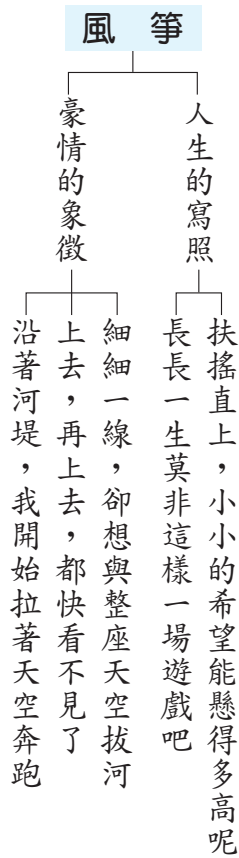 風箏
人生的寫照
扶搖直上，小小的希望能懸得多高呢
長長一生莫非這樣一場遊戲吧
豪情的象徵
細細一線，卻想與整座天空拔河
上去，再上去，都快看不見了
沿著河堤，我開始拉著天空奔跑